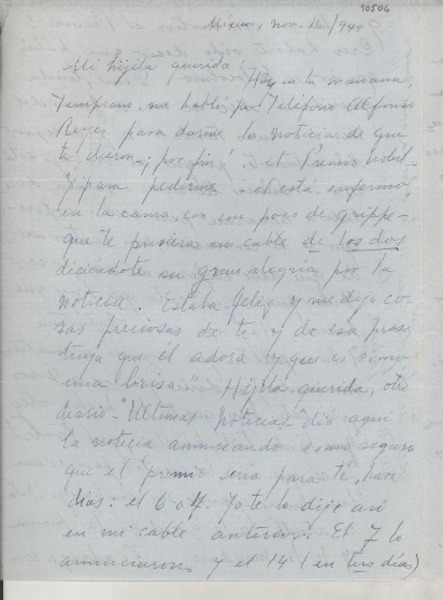 10506
México, nov. 16/944
Mi hijita querida:
Hoy en la mañana,
temprano, me habló por teléfono Alfonso
Reyes para darme la noticia de que
te dieron - ¡por fin! el Premio Nobel
y para pedirme - él está enfermo,
en la cama, con un poco de grippe -
que te pusiera un cable de los dos
diciéndote su gran alegría por la
noticia. Estaba feliz y me dijo co-
sas preciosas de ti y de esa prosa
tuya que él adora y que es "como
una brisa". Hijita querida, otro
diario - "Ultimas Noticias" dió aquí
la noticia anunciando como seguro
que el premio sería para ti, hace
días: el 6 o 7. Yo te lo dije así
en mi cable anterior. El 7 lo
anunciaron y el 14 (en tres días)